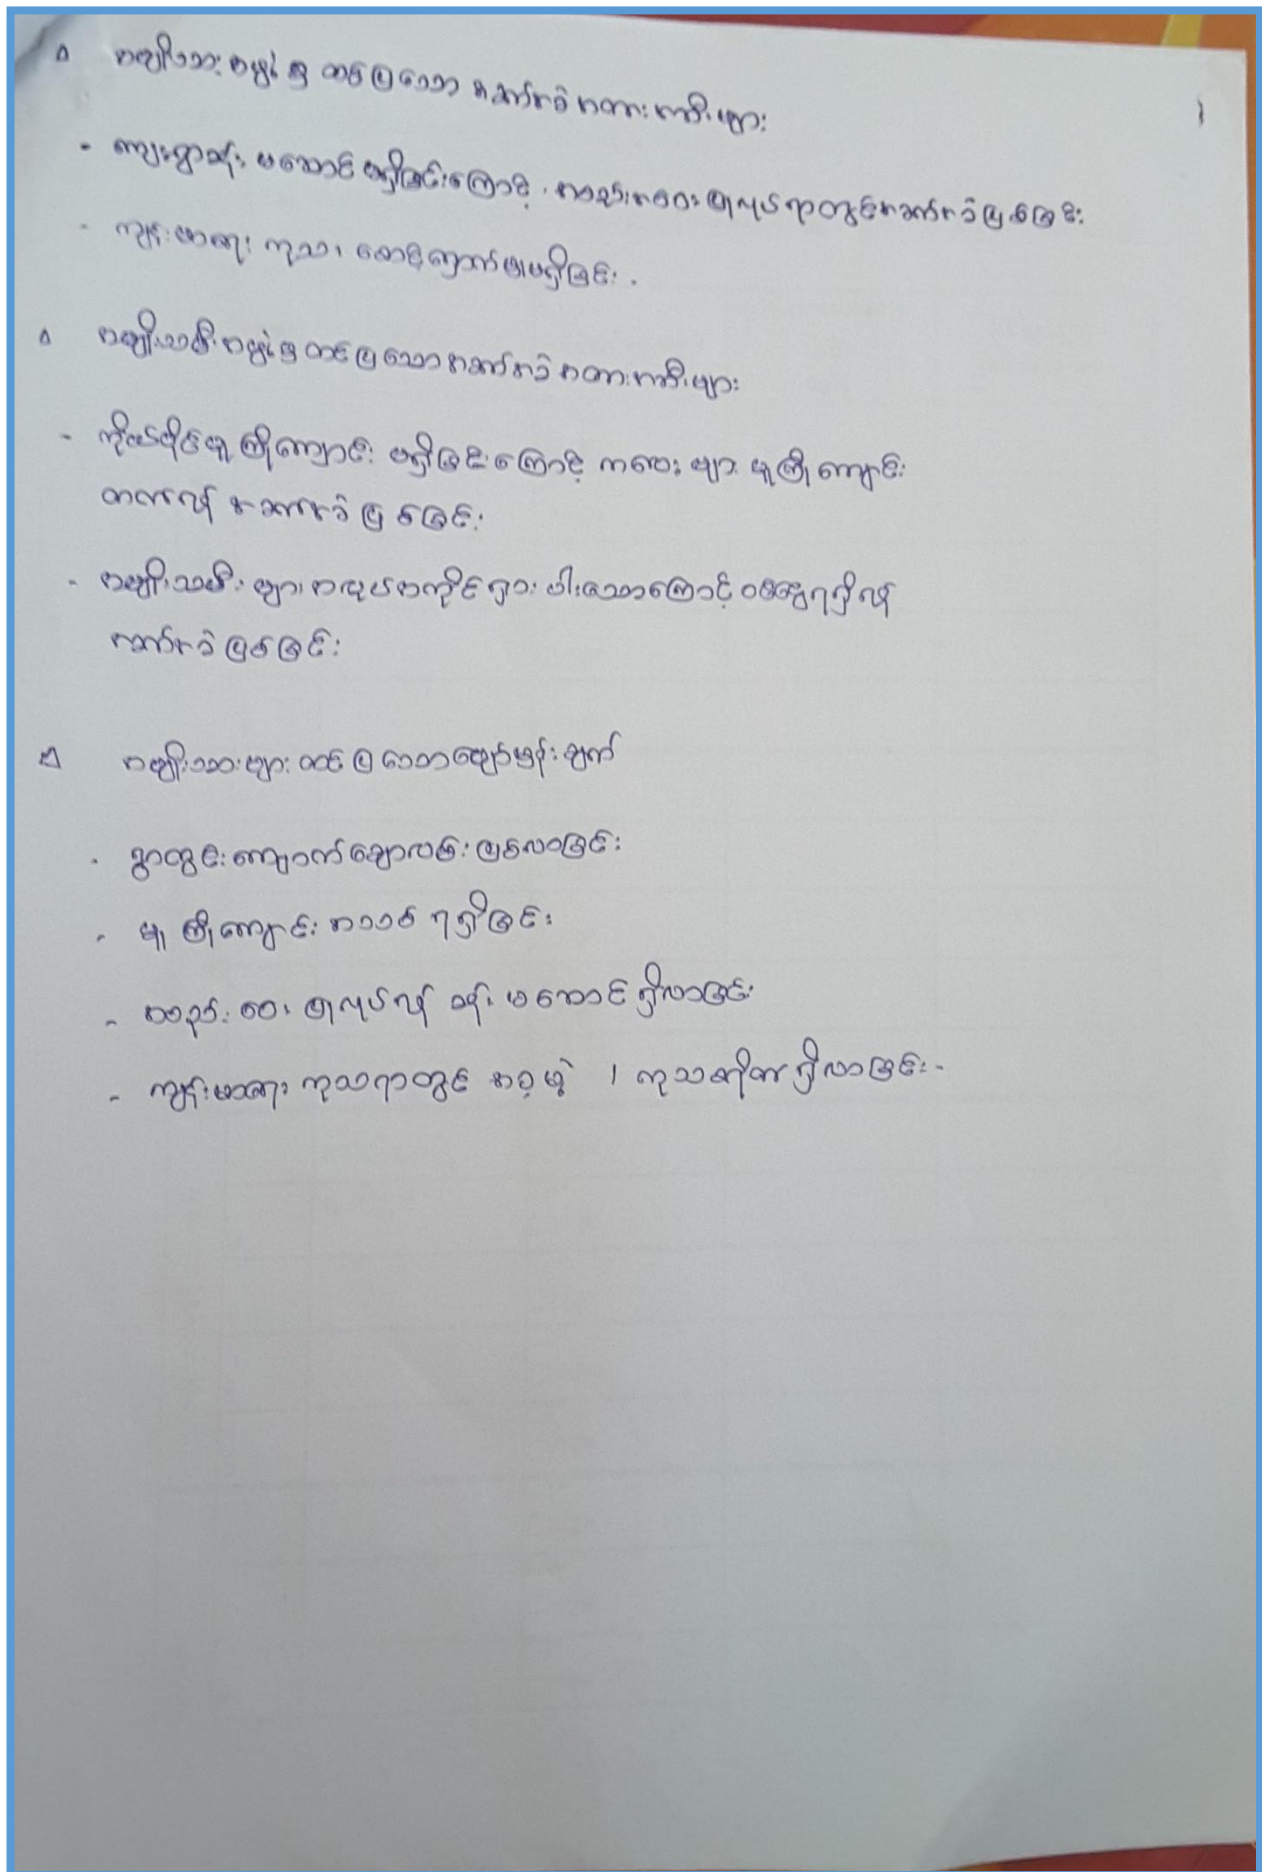 ၁ အမျိုးသားအဖွဲ့မှ တင်ပြသော အခက်အခဲအတားအဆီးများ
- ကျေးရွာခန်းမဆောင် မရှိခြင်းကြောင့် အစည်းအဝေးပြုလုပ်ရာတွင်အခက်အခဲဖြစ်ခြင်း
- ကျန်းမာရေး ကုသ၊ စောင့်ရှောက်မှုမရှိခြင်း.
၁ အမျိုးသမီးအဖွဲ့မှ တင်ပြသောအခက်အခဲ အတားအဆီးများ
- ကိုယ်ပိုင်မူကြိုကျောင်း မရှိခြင်းကြောင့် ကလေးများ မူကြိုကျောင်း
တက်ရန် အခက်အခဲ ဖြစ်ခြင်း
- အမျိုးသမီးများ အလုပ်အကိုင်ရှားပါးသောကြောင့် ဝင်ငွေရရှိရန်
အခက်အခဲ ဖြစ်ခြင်း
၂ အမျိုးသားများ တင်ပြသောမျှော်မှန်းချက်
- ရွာတွင်းကျောက်ချောလမ်း ဖြစ်လာခြင်း
- မူကြိုကျောင်း အသစ် ရရှိခြင်း
- အစည်းအဝေး ပြုလုပ်ရန် ခန်းမဆောင် ရှိလာခြင်း
- ကျန်းမာရေး ကုသရာတွင် အခမဲ့ ကုသ ရှိလာခြင်း-